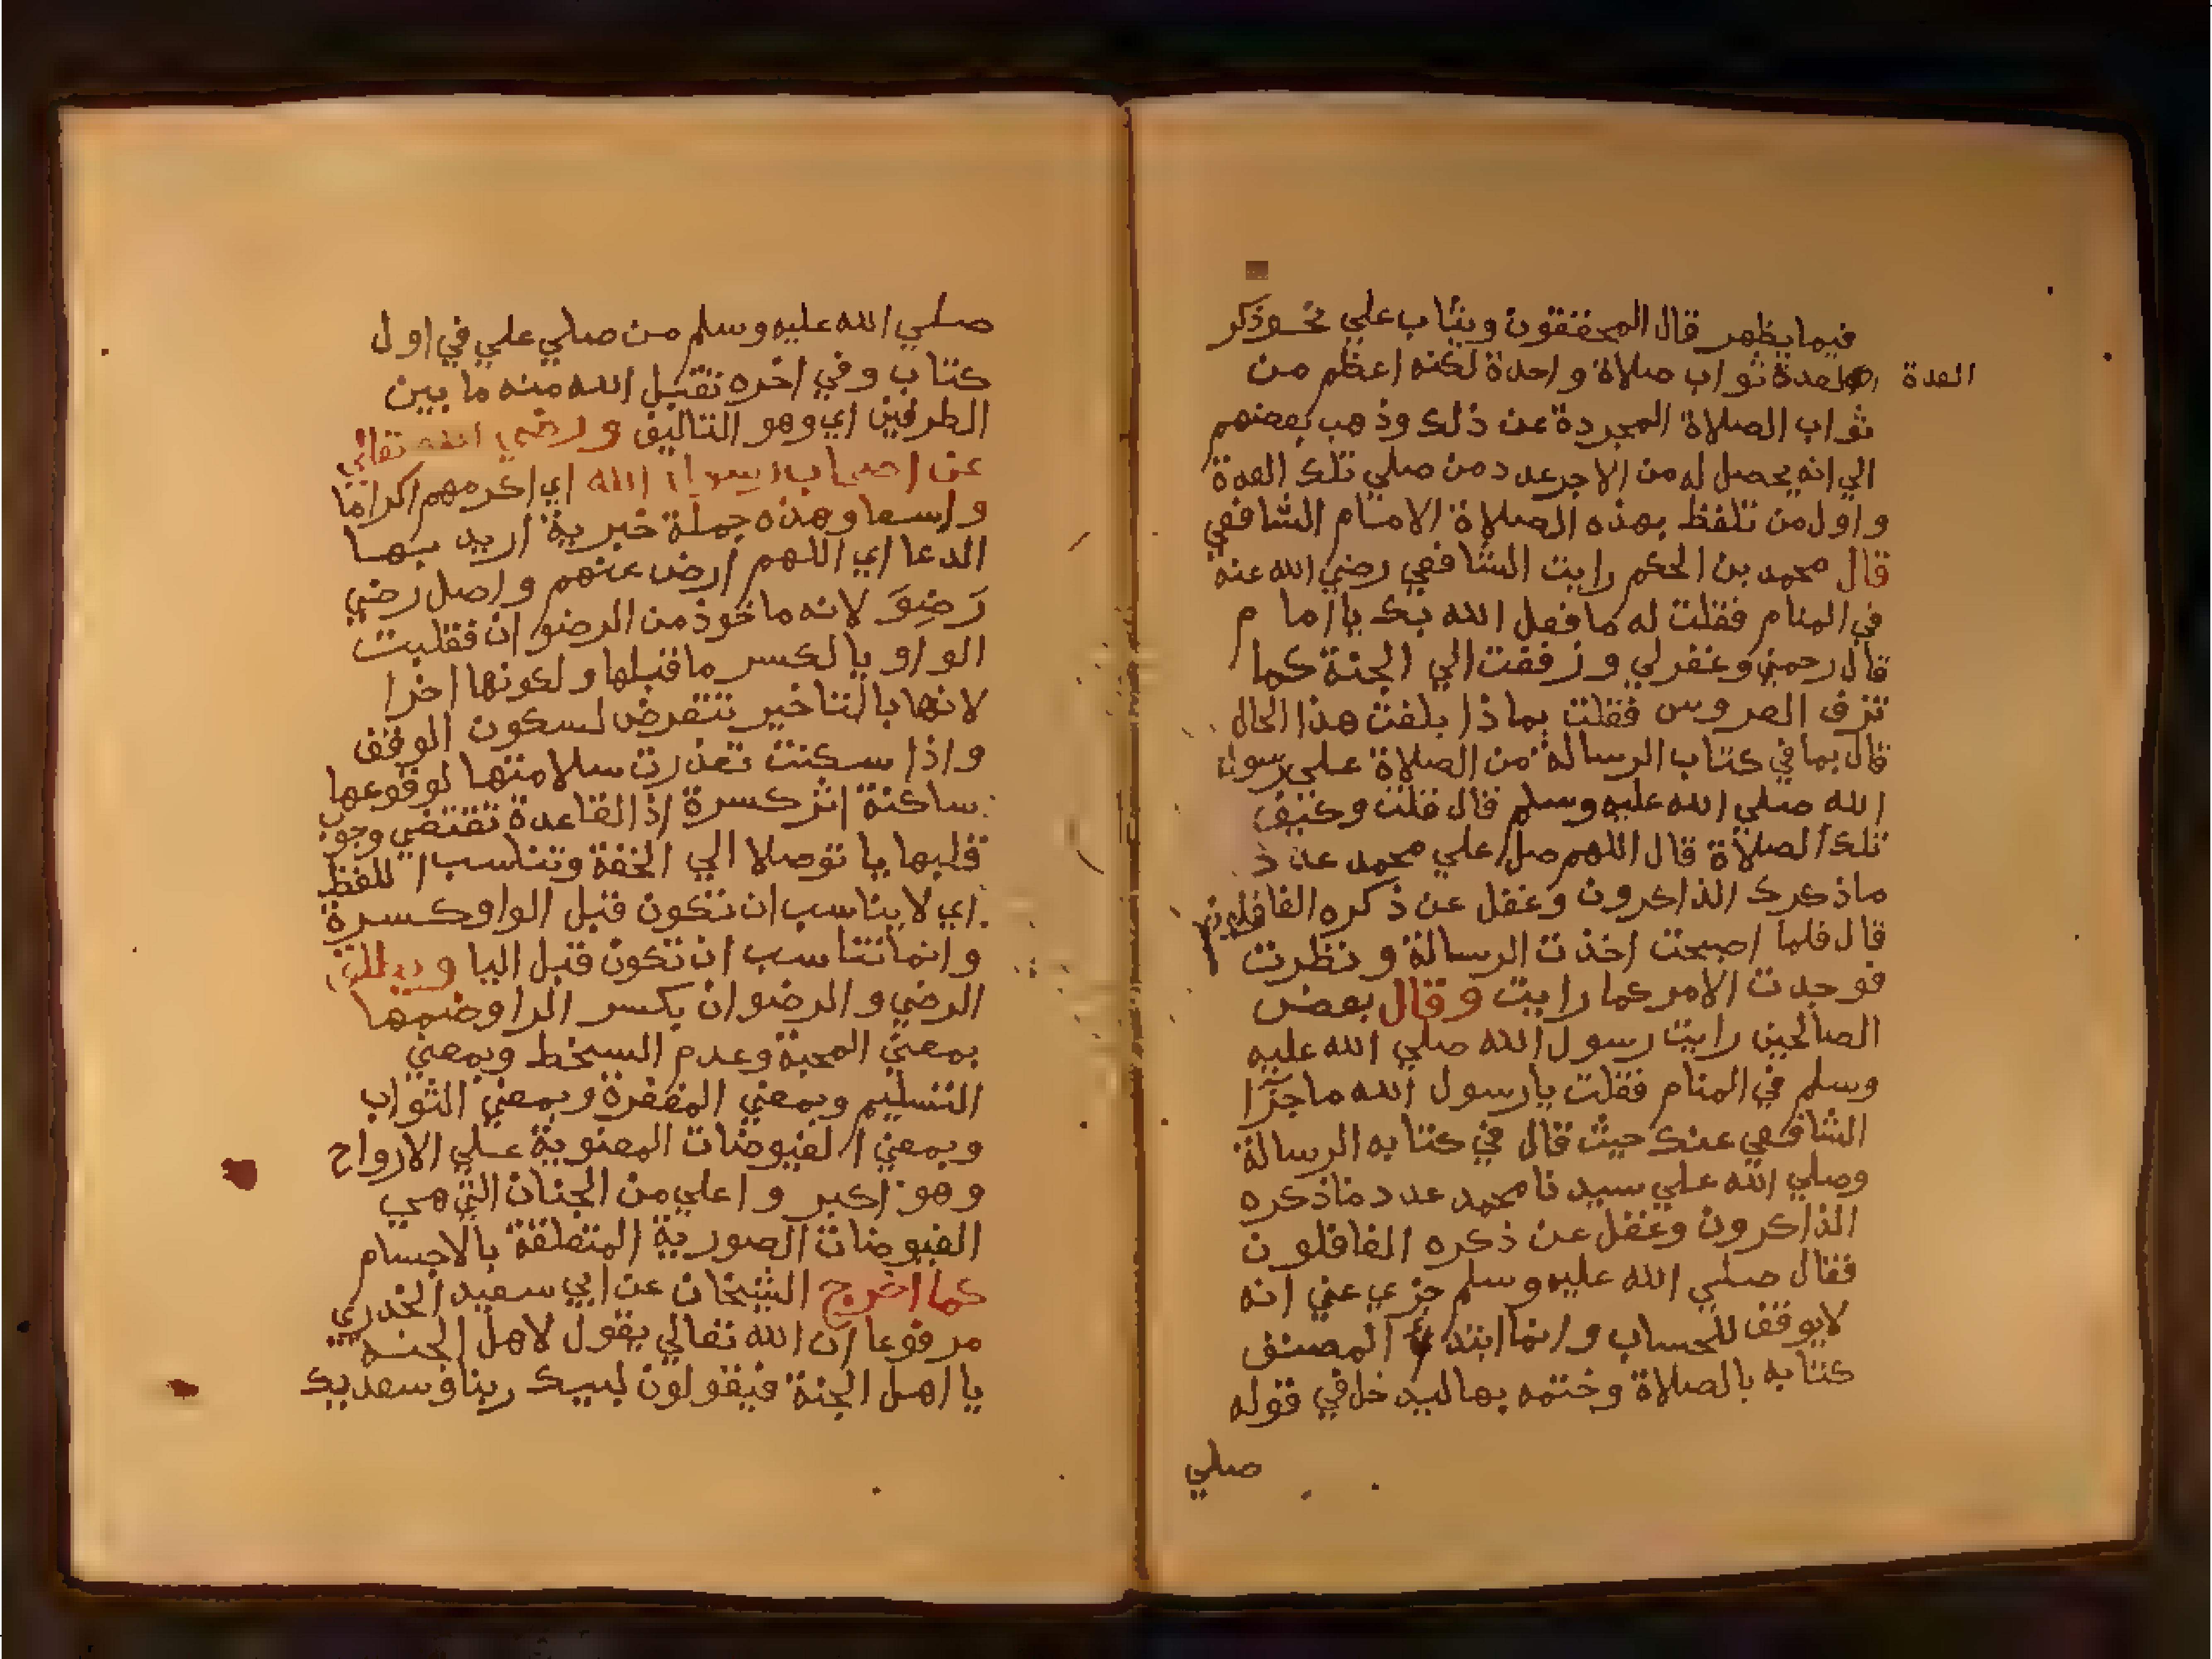 فيما يظهر قال المحققون ويثاب علي نحو ذكر
العدة ثواب صلاة واحدة لكنه اعظم من
العدة
ثواب الصلاة المجردة عن ذلك وذهب بعضهم
الي انه يحصل له من الاجر عدد من صلي تلك العدة
واول من تلفظ بهذه الصلاة الامام الشافعي
قال محمد بن الحكم رايت الشافعي رضي الله عنه
في المنام فقلت له ما فعل الله بك يا امام
قال رحمني وغفر لي وزففت الي الجنة كما
تزف العروس فقلت بماذا بلغت هذا الحال
قال بما في كتاب الرسالة من الصلاة علي رسول
الله صلي الله عليه وسلم قال قلت وكيف
تلك الصلاة قال اللهم صل علي محمد عدد
ما ذكرك الذاكرون وغفل عن ذكره الغافلون
قال فلما اصبحت اخذت الرسالة ونظرت
فوجدت الامر كما رايت وقال بعض
الصالحين رايت رسول الله صلي الله عليه
وسلم في المنام فقلت يا رسول الله ما جزا
الشافعي عندك حيث قال في كتابه الرسالة
وصلي الله علي سيدنا محمد عدد ما ذكره
الذاكرون وغفل عن ذكره الغافلون
فقال صلي الله عليه وسلم جزي عني انه
لا يوقف للحساب وانما ابتدا المصنف
كتابه بالصلاة وختمه بها ليدخل في قوله
صلي
صلي الله عليه وسلم من صلي علي في اول
كتاب وفي اخره تقبل الله منه ما بين
الطرفين اي وهو التاليف ورضي الله تعالي
عن اصحاب رسول الله اي اكرمهم اكراما
واسعا وهذه جملة خبرية اريد بها
الدعا اي اللهم ارض عنهم واصل رضي
رَضِوَ لانه ماخوذ من الرضوان فقلبت
الواو يا لكسر ما قبلها ولكونها اخرا
لانها بالتاخير تتعرض لسكون الوقف
واذا سكنت تعذرت سلامتها لوقوعها
ساكنة اثر كسرة اذ القاعدة تقتضي وجوب
قلبها يا توصلا الي الخفة وتناسب اللفظ
اي لا يناسب ان تكون قبل الواو كسرة
وانما تتناسب ان تكون قبل اليا ويطلق
الرضي والرضوان بكسر الرا وضمها
بمعني المحبة وعدم السخط وبمعني
التسليم وبمعني المغفرة وبمعني الثواب
وبمعني الفيوضات المعنوية علي الارواح
وهو اكبر واعلي من الجنان التي هي
الفيوضات الصورية المتعلقة بالاجسام
كما اخرج الشيخان عن ابي سعيد الخدري
مرفوعا ان الله تعالي يقول لاهل الجنة
يا اهل الجنة فيقولون لبيك ربنا وسعديك